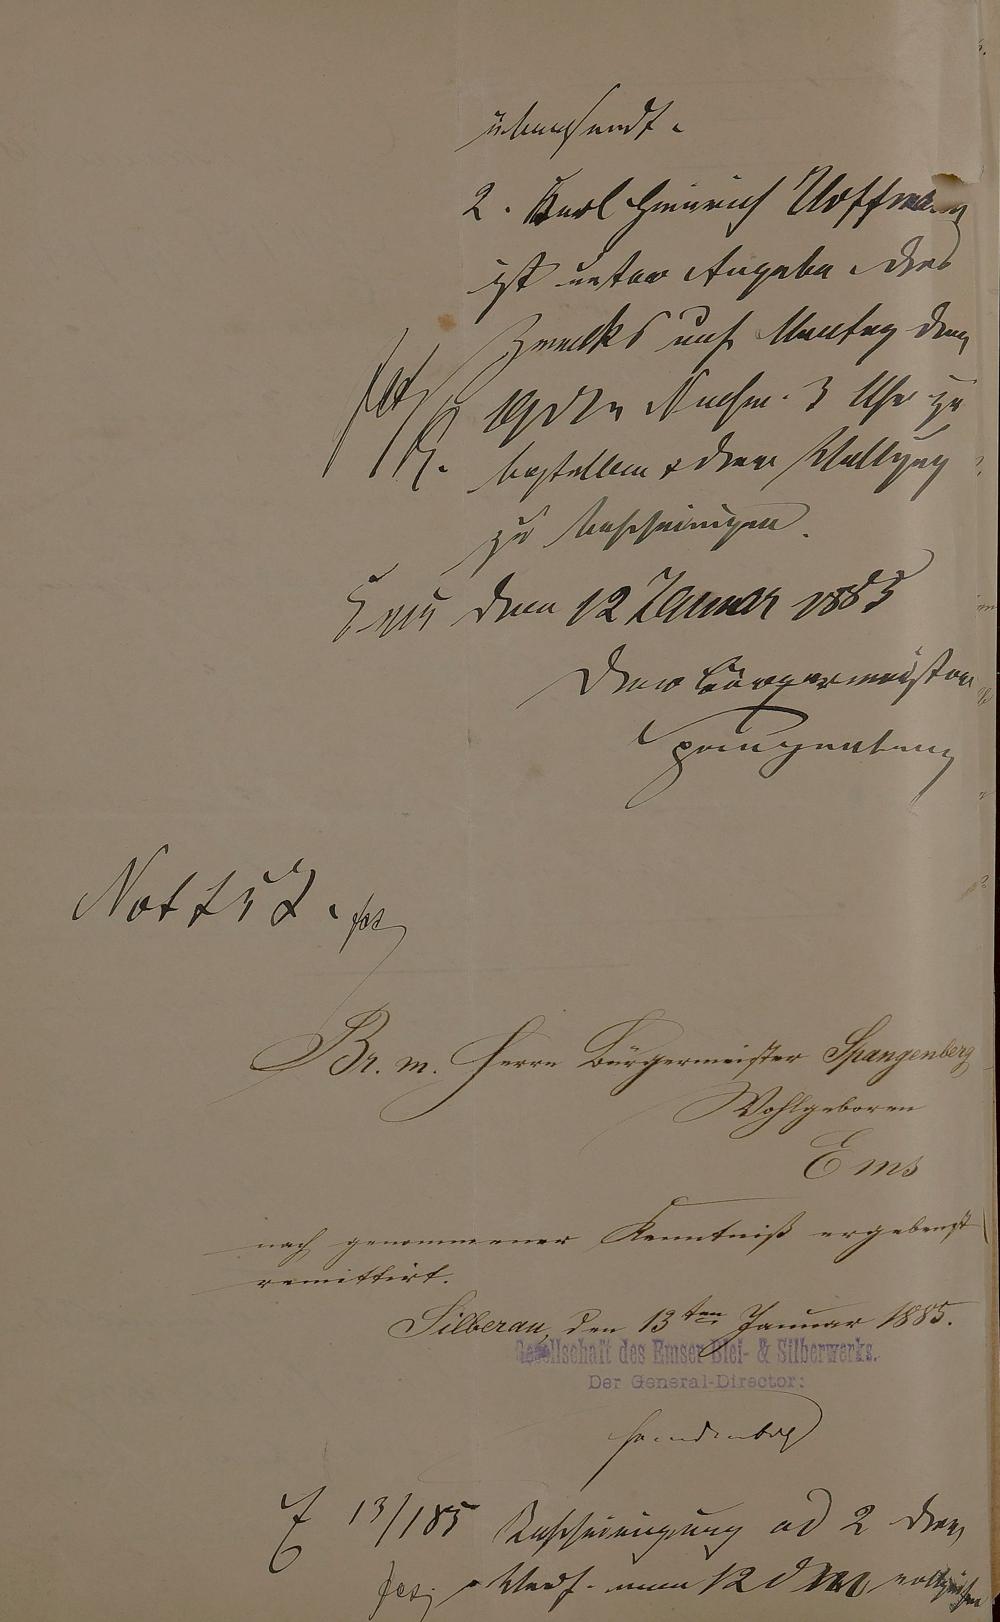 übersandt.
2. Karl Heinrich Hoffmann
ist unter Angabe des
Zwecks auf Montag den
19 d Mts Nachm. 3 Uhr zu
bestellen & der Vollzug
zu bescheinigen.
Ems den 12 Januar 1885
Der Bürgermeister
Spangenberg
Not
Br. m. Herrn Bürgermeister Spangenberg
Wohlgeboren
Ems
nach genommener Kenntniß ergebenst
remittirt.
Silberau, den 13ten Januar 1885.
Gesellschaft des Emser Blei- & Silberwerks.
Der General-Director:
13/1 85 Bescheinigung ad 2 der
Verf. vom 12 d